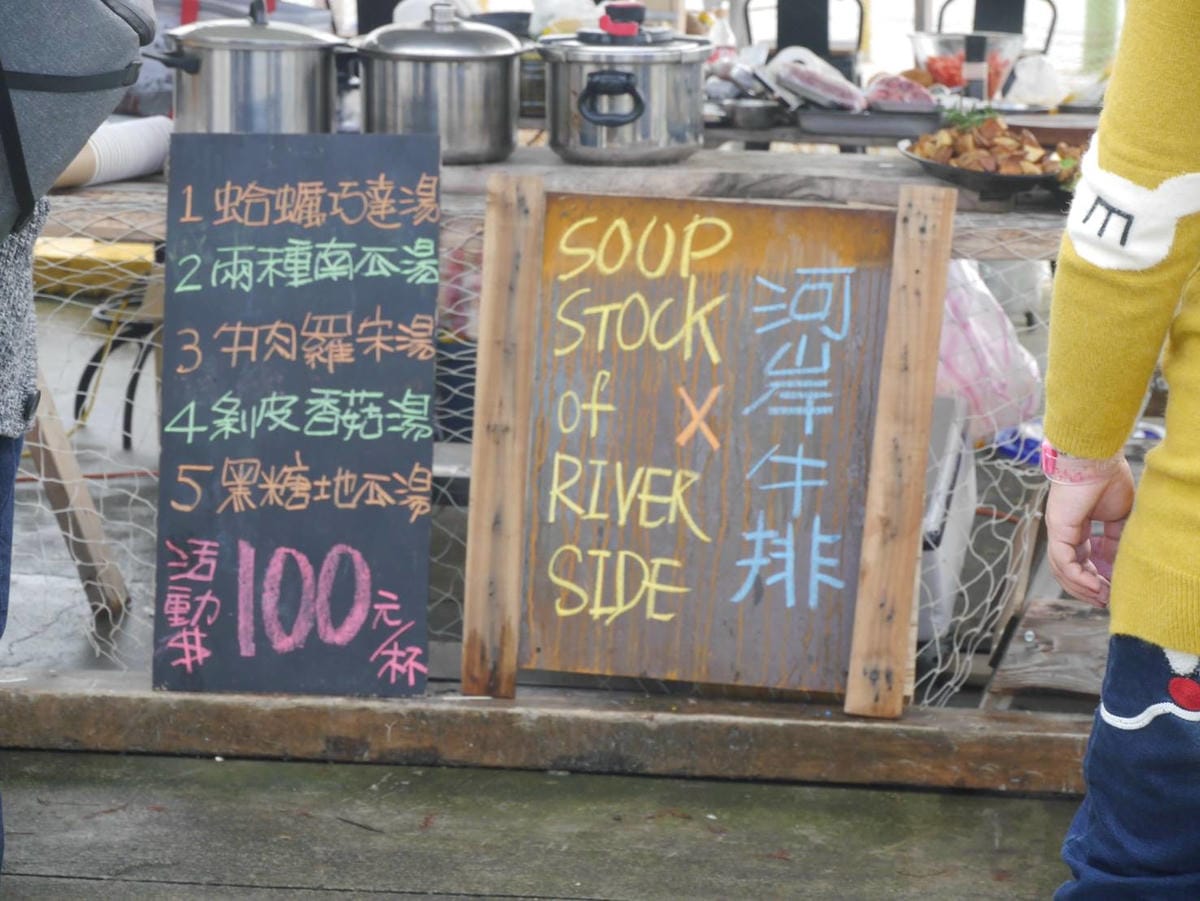 1 蛤蠣巧達湯
2 兩種南瓜湯
3 牛肉羅宋湯
4 剝皮香菇湯
5 黑糖地瓜湯
活動
100元/杯
SOUP
STOCK
of X
RIVER
SIDE
河岸牛排
E